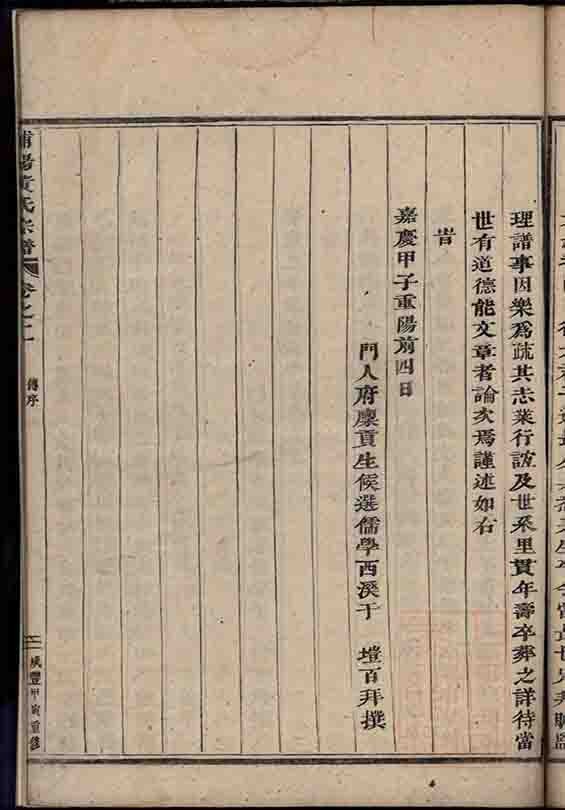 理譜事因樂爲疏其志業行誼及世系里貫年壽卒葬之詳待當
世有道德能文章者論次焉謹述如右
旹
嘉慶甲子重陽前四日
門人府廩貢生候選儒學西溪于　塏百拜撰
浦陽黃氏宗譜　卷之二　傳序　咸豐甲寅重修